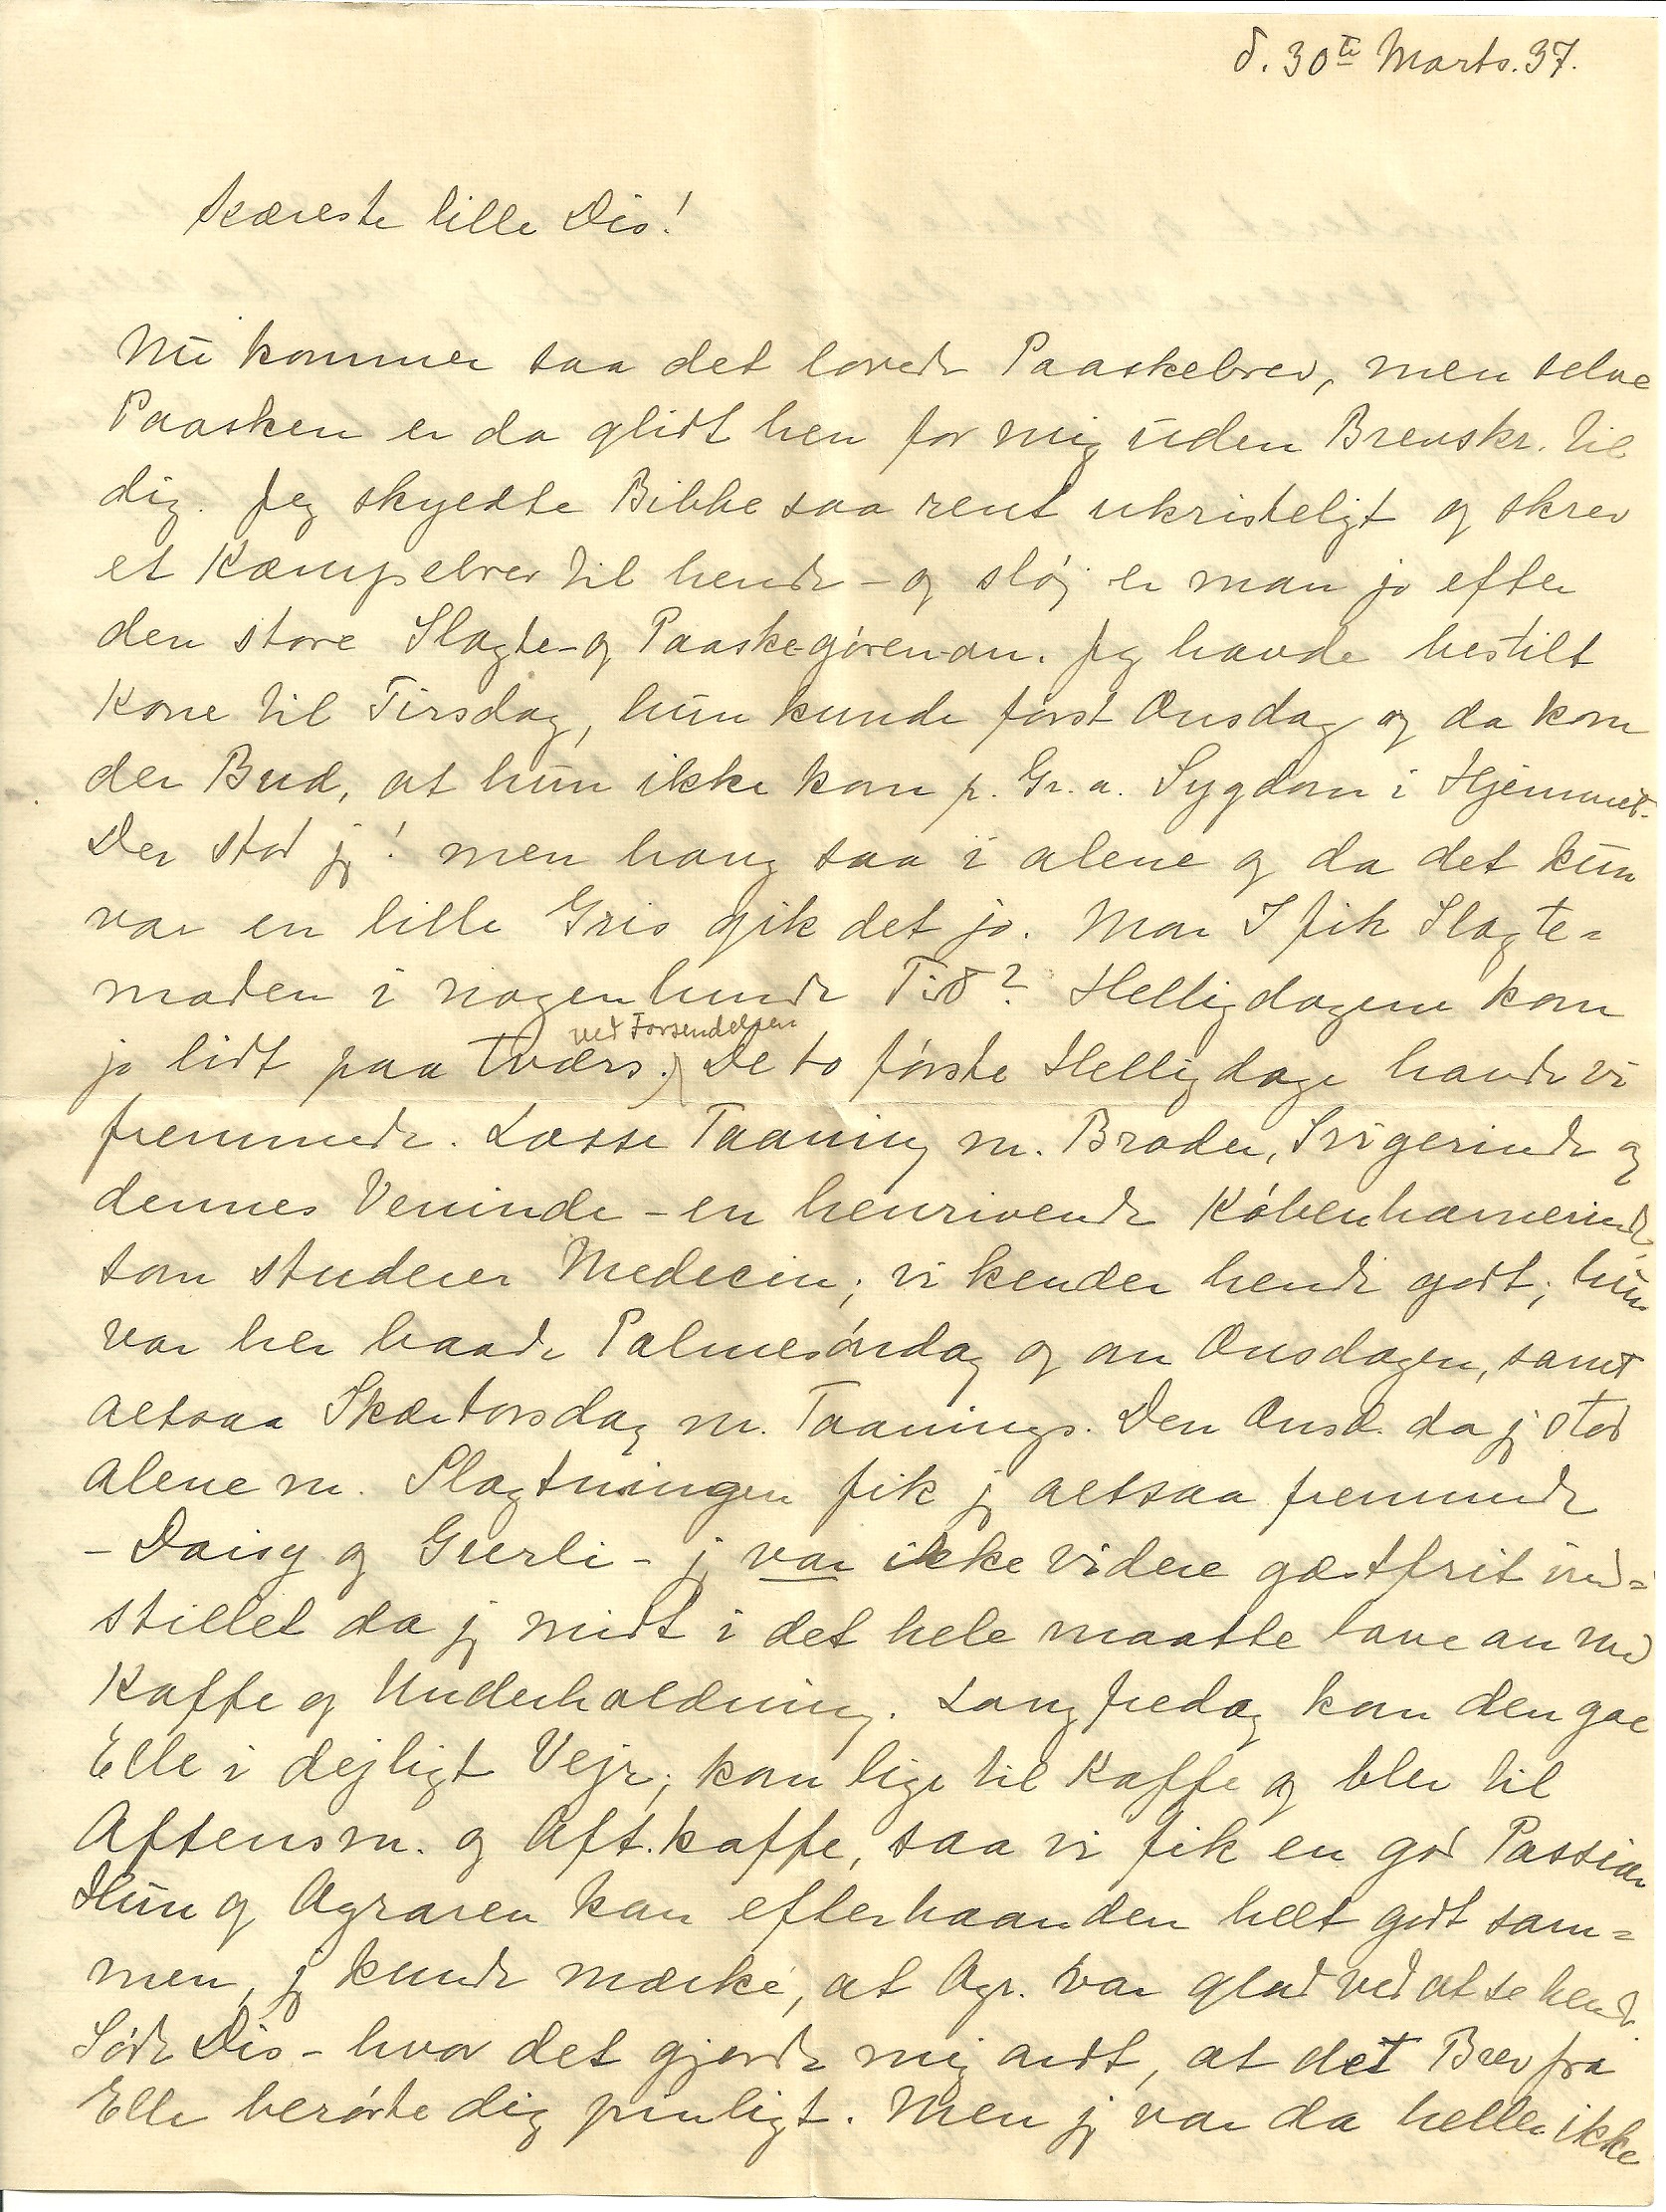 d. 30te Marts. 37.
Kæreste lille Dis!
Nu kommer saa det lovede Paaskebrev, men selve
Paasken er da glidt hen for mig uden Brevskr. til
dig. Jeg skyldte Bibbe saa rent ukristeligt og skrev
et Kæmpebrev til hende – og sløj er man jo efter
den store Slagte- og Paaske-gøren-an. Jeg havde bestilt
Kone til Tirsdag, hun kunde først Onsdag og da kom
der Bud, at hun ikke kom p. Gr. a. Sygdom i Hjemmet.
Der stod jeg! men hang saa i alene og da det kun
var en lille Gris gik det jo. Mon I fik Slagte=
maden i nogenlunde Tid? Helligdagene kom
jo lidt paa tværs ved Forsendelsen. De to første Helligdage havde vi
fremmede. Lasse Taaning m. Broder, Svigerinde og
dennes Veninde – en henrivende Københavnerinde,
som studerer Medecin; vi kender hende godt; hun
var her baade Palmesøndag og om Onsdagen, samt
altsaa Skærtorsdag m. Taanings. Den Onsd. da jeg stod
alene m. Slagtningen fik jeg altsaa fremmede
– Daisy og Guerli – jeg var ikke videre gæstfrit ind=
stillet da jeg midt i det hele maatte lave an med
Kaffe og Underholdning. Langfredag kom den gode
Elle i dejligt Vejr; kom lige til Kaffe og blev til
Aftensm. og Aft.kaffe, saa vi fik en god Passiar
Hun og Agraren kan efterhaanden helt godt sam=
men, jeg kunde mærke, at Agr. var glad ved at se hende.
Søde Dis – hvor det gjorde mig ondt, at det Brev fra
Elle berørte dig pinligt. Men jeg var da heller ikke